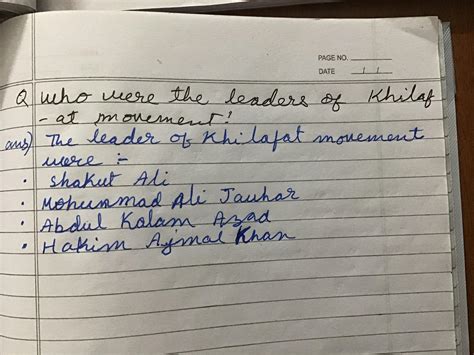 PAGE NO.
DATE / /
Q who were the leaders of Khilaf
- at movement!
ans) The leader of Khilafat movement
were :-
• Shakut Ali
• Mohummad Ali Jauhar
• Abdul Kalam Azad
• Hakim Ajmal Khan